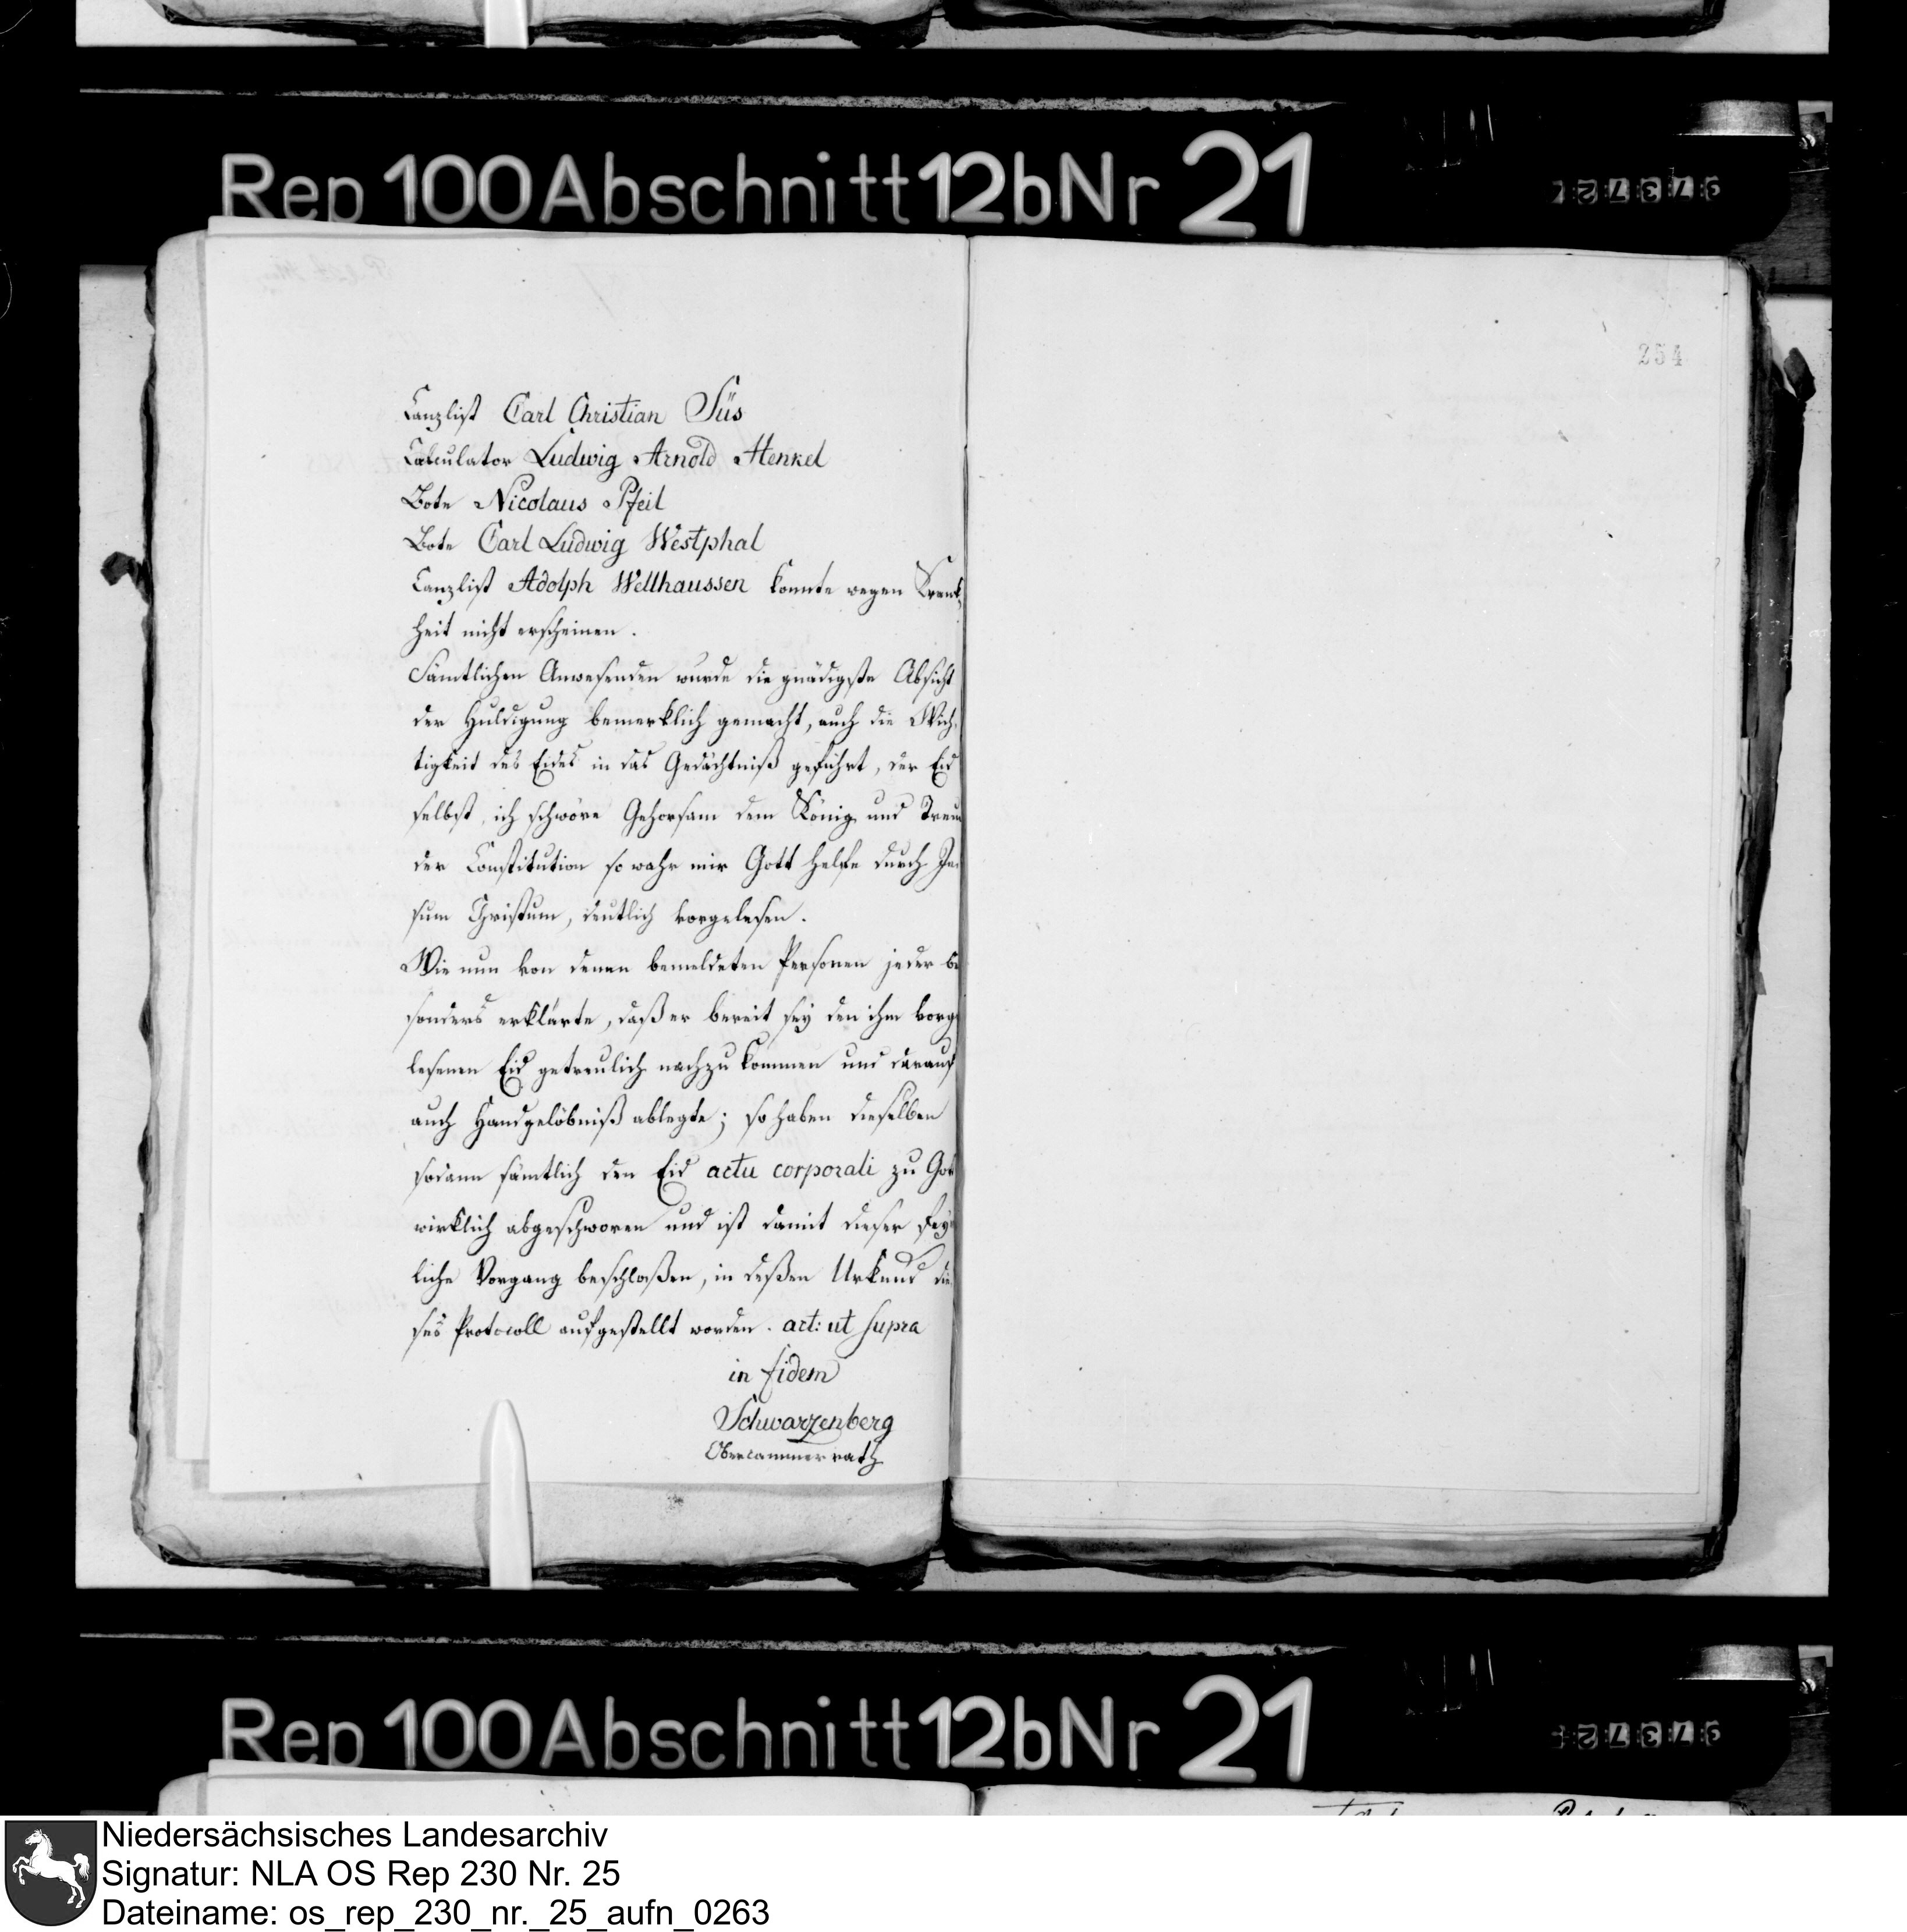 Rep 100 Abschnitt 12b Nr 21
254
Canzlist Carl Christian Süs
Calculator Ludwig Arnold Henkel
Bote Nicolaus Pfeil
Bote Carl Ludwig Westphal
Canzlist Adolph Wellhaussen konnte wegen Krank¬
heit nicht erscheinen.
Sämtlichen Anwesenden wurde die gnädigste Absicht
der Huldigung bemerklich gemacht, auch die Wich¬
tigkeit des Eides in das Gedächtniß geführt, der Eid
selbst, ich schwöre Gehorsam dem König und Treue
der Constitution so wahr mir Gott helfe durch Je¬
sum Christum, deutlich vorgelesen.
Wie nun von denen bemeldeten Personen jeder be
sonders erklärte, daß er bereit sey den ihm vorge
lesenen Eid getreulich nachzukommen und darauf
auch Handgelöbniß ablegte; so haben dieselben
sodann sämtlich den Eid actu corporali zu Gott
wirklich abgeschworen und ist damit dieser fey
liche Vorgang beschloßen, in deßen Urkund die
ses Protocoll aufgestellt worden. act: ut supra
in fidem
Schwarzenberg
Obercammerrath
Rep 100 Abschnitt 12b Nr 21
Niedersächsisches Landesarchiv
Signatur: NLA OS Rep 230 Nr. 25
Dateiname: os_rep_230_nr._25_aufn_0263